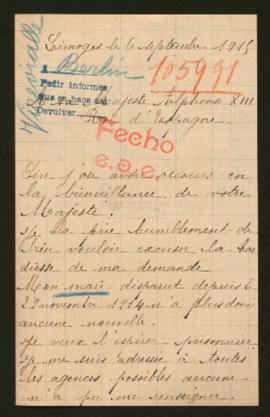 Limoges le 6 septembre 1915
1 Berlin
105991
Pedir informes
que se hace así
Devolver
A sa Majesté Alphonse XIII
Roi d'Espagne
Fecho
e.a.e.
Sire j'ose avoir recours en
la bienveillance de votre
Majesté!
Je La prie humblement de
bien vouloir excuser la har
diesse de ma demande
Mon mari disparut depuis le
27 novembre 1914 n'a plus donné
aucune nouvelle.
Je veux l'espérer prisonnier.
Je me suis adressée à toutes
les agences possibles aucune
n'a pu me renseigner.